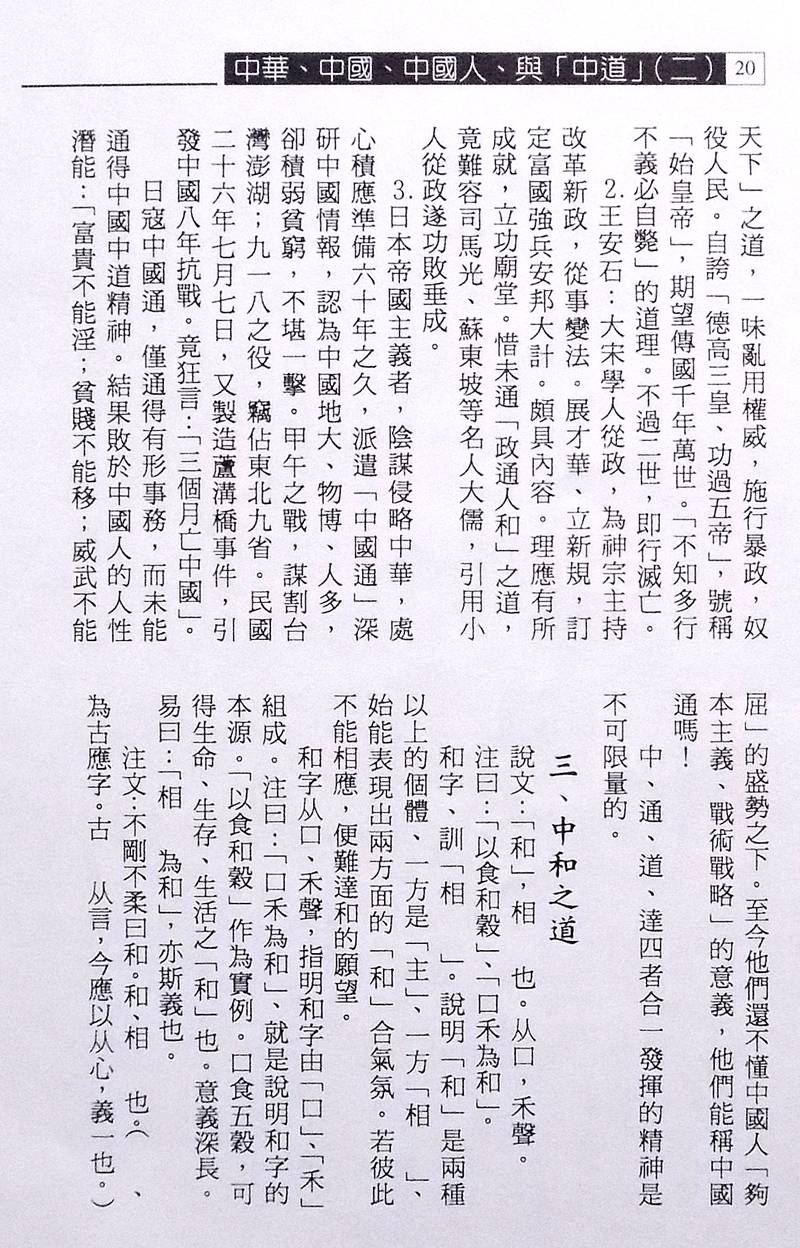 中華、中國、中國人、與「中道」（二） 20
天下」之道，一味亂用權威，施行暴政，奴
役人民。自誇「德高三皇、功過五帝」，號稱
「始皇帝」，期望傳國千年萬世。「不知多行
不義必自斃」的道理。不過二世，即行滅亡。
2.王安石：大宋學人從政，為神宗主持
改革新政，從事變法。展才華、立新規，訂
定富國強兵安邦大計。頗具內容。理應有所
成就，立功廟堂。惜未通「政通人和」之道，
竟難容司馬光、蘇東坡等名人大儒，引用小
人從政遂功敗垂成。
3.日本帝國主義者，陰謀侵略中華，處
心積應準備六十年之久，派遣「中國通」深
研中國情報，認為中國地大、物博、人多，
卻積弱貧窮，不堪一擊。甲午之戰，謀割台
灣澎湖；九一八之役，竊佔東北九省。民國
二十六年七月七日，又製造蘆溝橋事件，引
發中國八年抗戰。竟狂言：「三個月亡中國」。
日寇中國通，僅通得有形事務，而未能
通得中國中道精神。結果敗於中國人的人性
潛能：「富貴不能淫；貧賤不能移；威武不能
屈」的盛勢之下。至今他們還不懂中國人「夠
本主義、戰術戰略」的意義，他們能稱中國
通嗎！
中、通、道、達四者合一發揮的精神是
不可限量的。
三、中和之道
說文：「和」，相　也。从口，禾聲。
注曰：「以食和穀」、「口禾為和」。
和字、訓「相　」。說明「和」是兩種
以上的個體、一方是「主」、一方「相　」、
始能表現出兩方面的「和」合氣氛。若彼此
不能相應，便難達和的願望。
和字从口、禾聲，指明和字由「口」、「禾」
組成。注曰：「口禾為和」、就是說明和字的
本源。「以食和穀」作為實例。口食五穀，可
得生命、生存、生活之「和」也。意義深長。
易曰：「相　為和」，亦斯義也。
注文：不剛不柔曰和。和、相　也。（　、
為古應字。古　从言，今應以从心，義一也。）